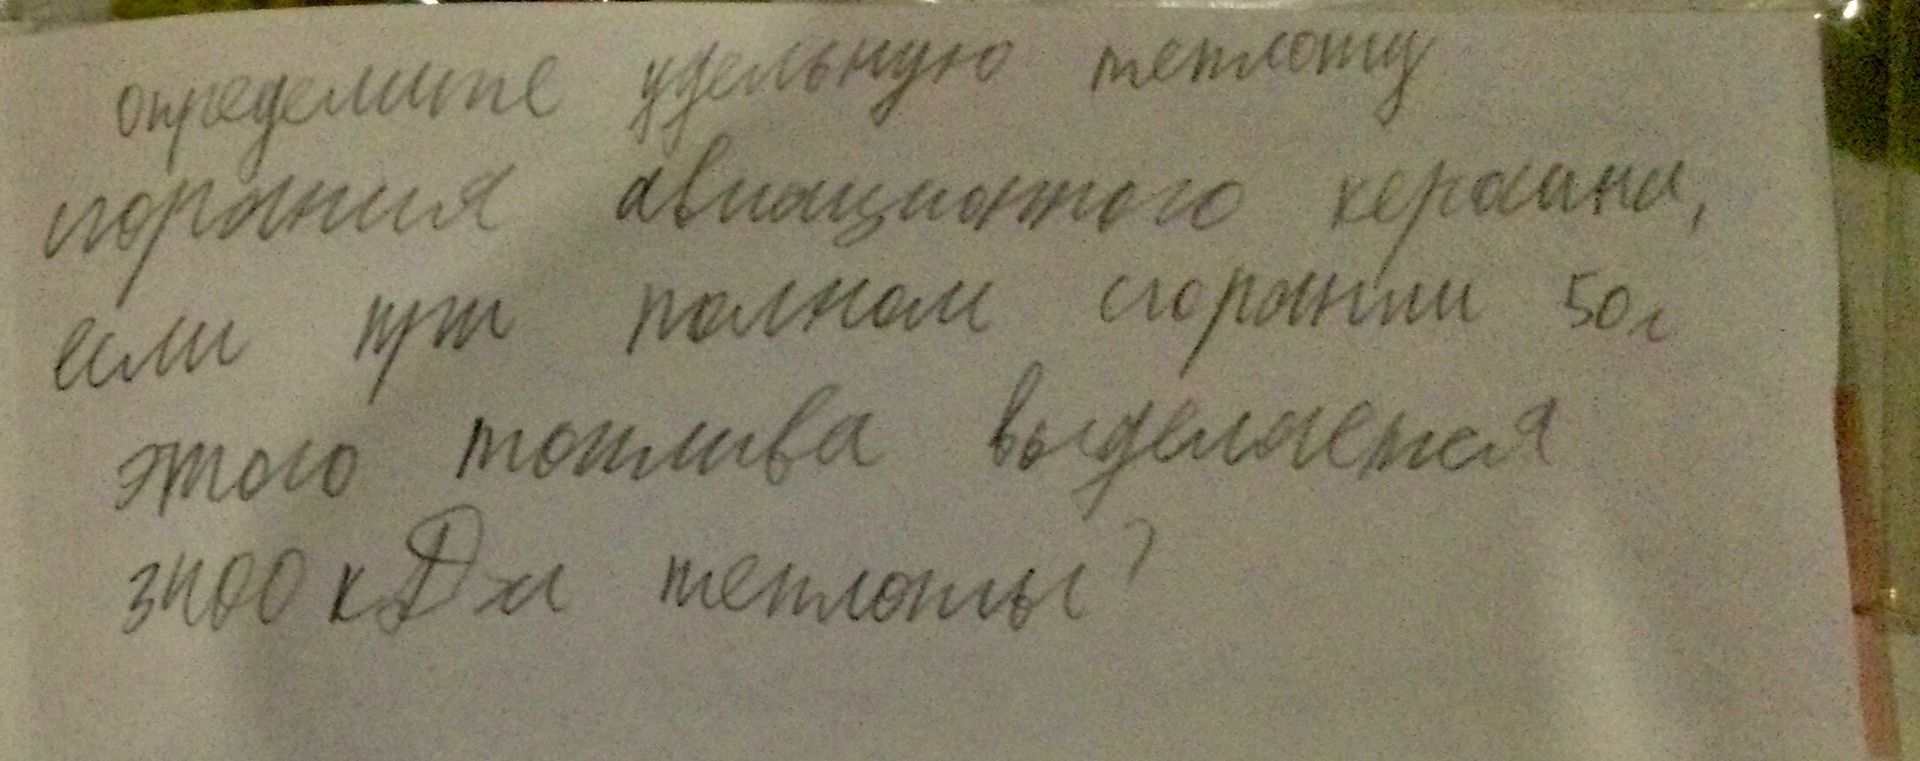 определите удельную теплоту
сгорания авиационного керосина,
если при полном сгорании 50г
этого топлива выделяется
3400 кДж теплоты?